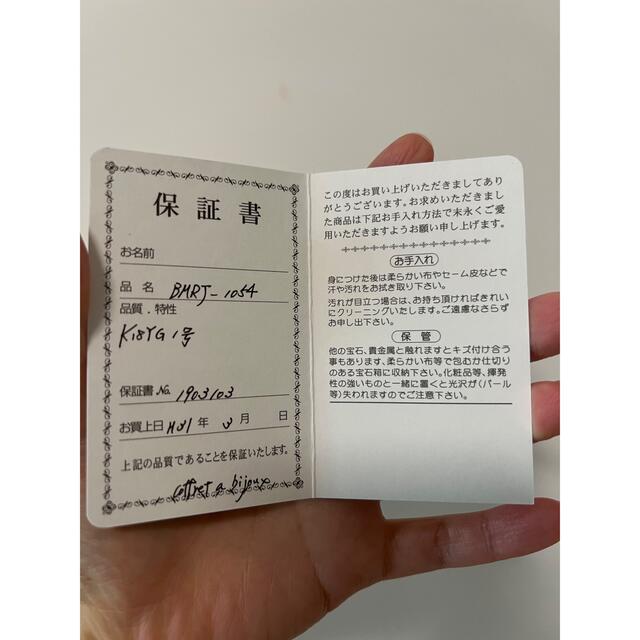 保証書
お名前
品名 BMRJ-1054
品質.特性
K18YG 1号
保証書No. 1903103
お買上日 H31年 3月 日
上記の品質であることを保証いたします。
coffret a bijoux
この度はお買い上げいただきましてあり
がとうございます。お求めいただきまし
た商品は下記お手入れ方法で末永くご愛
用いただきますようお願い申し上げます。
お手入れ
身につけた後は柔らかい布やセーム皮などで
汗や汚れをお拭き取り下さい。
汚れが目立つ場合は、お持ち頂ければきれい
にクリーニングいたします。ご遠慮なさらず
お申し出下さい。
保管
他の宝石、貴金属と触れますとキズ付け合う
事もあります、柔らかい布等で包むか仕切り
のある宝石箱に収納下さい。化粧品等、揮発
性の強いものと一緒に置くと光沢が(パール
等)失われますのでご注意下さい。